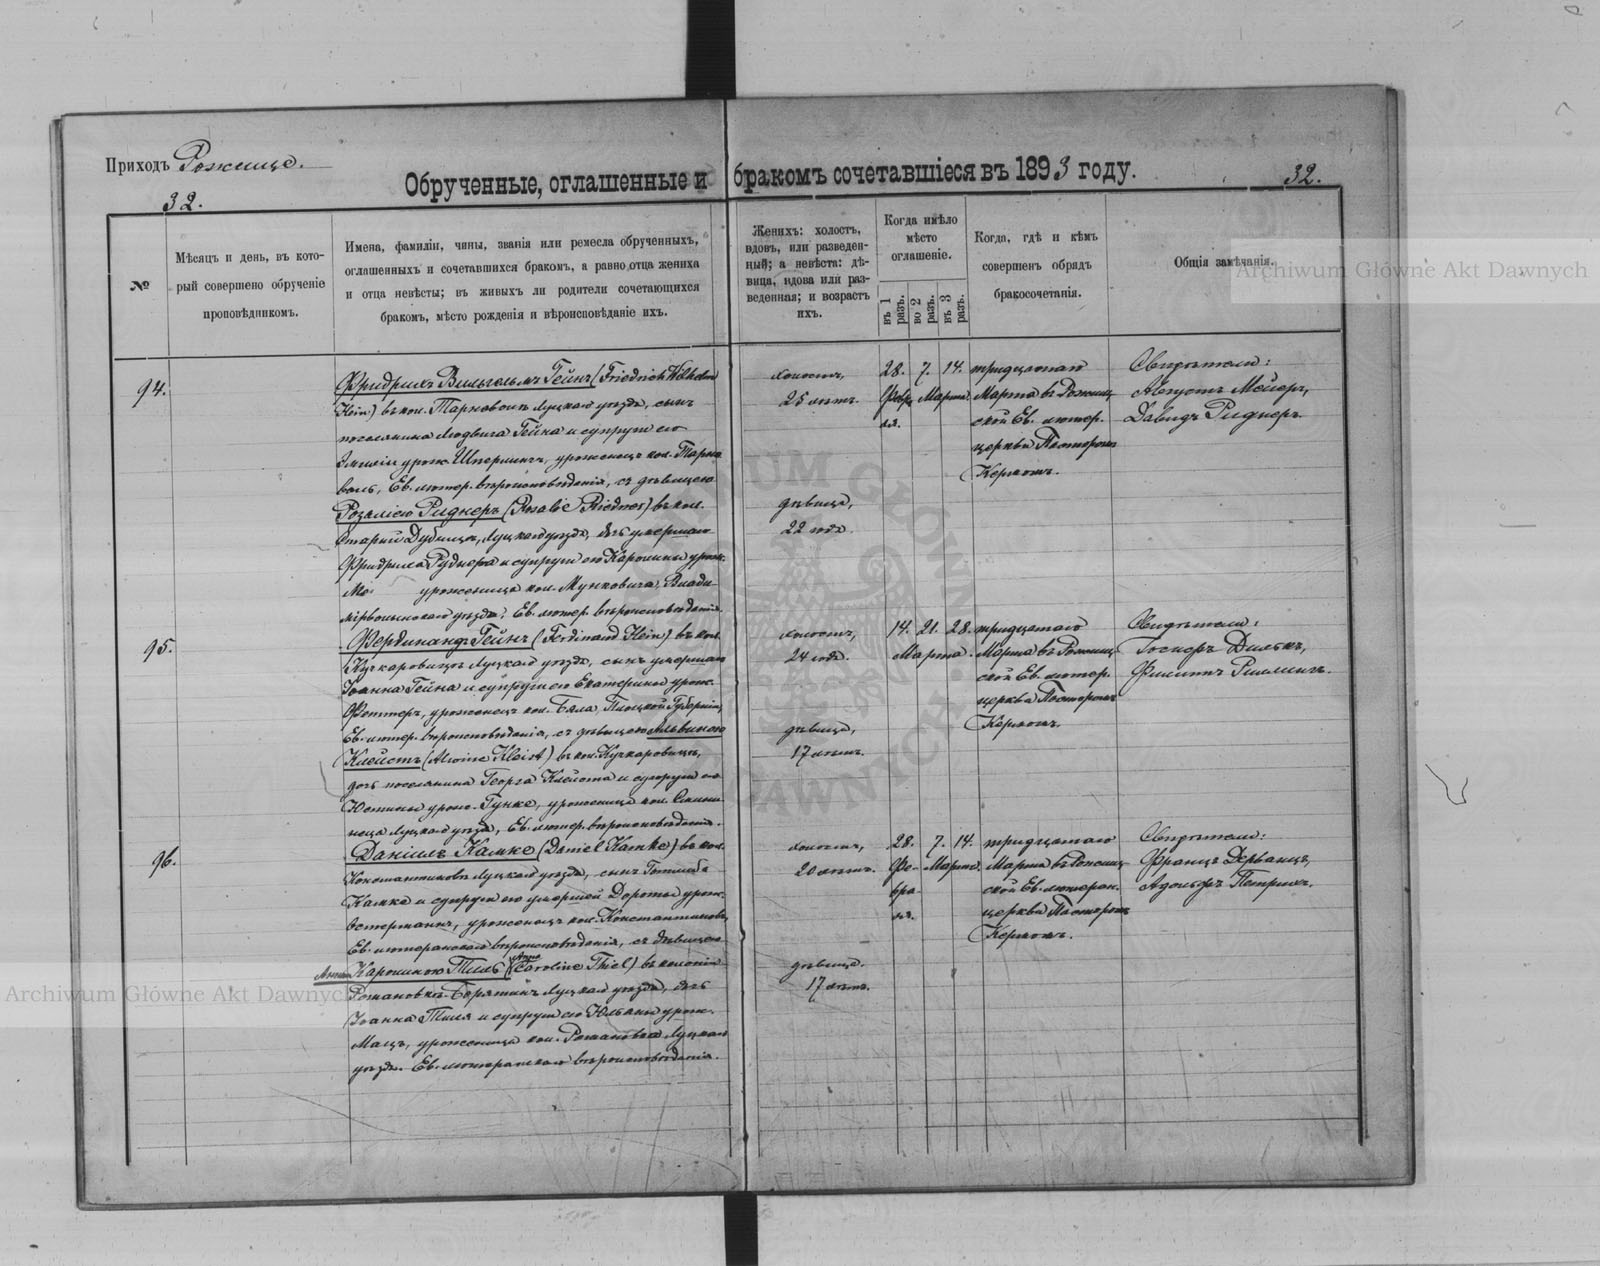 Приходъ Рожище.
Обрученные, оглашенные и бракомъ сочетавшіеся въ 1893 году.
32.
32.
№
Мѣсяцъ и день, въ кото-
рый совершено обрученіе
проповѣдникомъ.
Имена, фамиліи, чины, званія или ремесла обрученныхъ,
оглашенныхъ и сочетавшихся бракомъ, а равно отца жениха
и отца невѣсты; въ живыхъ ли родители сочетающихся
бракомъ, мѣсто рожденія и вѣроисповѣданіе ихъ.
Женихъ: холостъ,
вдовъ, или разведен-
ный; а невѣста: дѣ-
вица, вдова или раз-
веденная; и возрастъ
ихъ.
Когда имѣло
мѣсто
оглашеніе.
въ 1 разъ.
во 2 разъ.
въ 3 разъ.
Когда, гдѣ и кѣмъ
совершенъ обрядъ
бракосочетанія.
Общія замѣчанія.
Archiwum Główne Akt Dawnych
94.
Фридрихъ Вильгельмъ Гейнъ (Friedrich Wilhelm
Hein) въ кол. Тарновокъ Луцкаго уѣзда, сынъ
поселянина Людвига Гейна и супруги его
Эмиліи урож. уроженецъ кол.
Ев. лютер. вѣроисповѣданія, съ дѣвицею
Розаліею Риднеръ (Rosalie Riedner) въ кол.
Старый Луцкаго уѣзда, дочь умершаго
Фридриха Риднера и супруги его Каролины урож.
уроженица кол. Мунковича, Влади-
мірволынскаго уѣзда, Ев. лютер. вѣроисповѣданія.
холостъ,
25 лѣтъ.
дѣвица,
22 года.
28. 7. 14.
Февра Марта.
ля.
тридцатаго
Марта въ Рожищ-
ской Ев. лютер.
церкви Пасторомъ
Керномъ.
Свидѣтели:
Августъ Мейеръ,
Давидъ Риднеръ.
95.
Фердинандъ Гейнъ (Ferdinand Hein) въ кол.
Кучкаровицъ Луцкаго уѣзда, сынъ умершаго
Іоанна Гейна и супруги его Екатерины урож.
Феттеръ, уроженецъ кол. Бяла, Плоцкой Губерніи,
Ев. лютер. вѣроисповѣданія, съ дѣвицею Альвиною
Клейстъ (Alwine Kleist) въ кол. Кучкаровицъ,
дочь поселянина Георга Клейста и супруги его
Юстины урож. Гунке, уроженица кол.
Луцкаго уѣзда, Ев. лютер. вѣроисповѣданія.
холостъ,
24 года.
дѣвица,
17 лѣтъ.
14. 21. 28.
Марта.
тридцатаго
Марта въ Рожищ-
ской Ев. лютер.
церкви Пасторомъ
Керномъ.
Свидѣтели:
96.
Даніилъ Камке (Daniel Kamke) въ кол.
Константиновъ Луцкаго уѣзда, сынъ Готлиба
Камке и супруги его умершей Доротеи урож.
Остерманъ, уроженецъ кол. Константиновъ,
Ев. лютеранскаго вѣроисповѣданія, съ дѣвицею
Анною Каролиною Тиль (Anna Caroline Thiel) въ колоніи
Романовкѣ Борятинъ Луцкаго уѣзда, дочь
Іоанна Тиля и супруги его Юліаны урож.
Мацъ, уроженица кол. Романовка Луцкаго
уѣзда. Ев. лютеранскаго вѣроисповѣданія.
холостъ,
20 лѣтъ.
дѣвица.
17 лѣтъ.
28. 7. 14.
Фе- Марта.
вра-
ля.
тридцатаго
Марта въ Рожищ-
ской Ев. лютеран.
церкви Пасторомъ
Керномъ.
Свидѣтели:
Францъ Дерванцъ,
Адольфъ Петрихъ.
Archiwum Główne Akt Dawnych